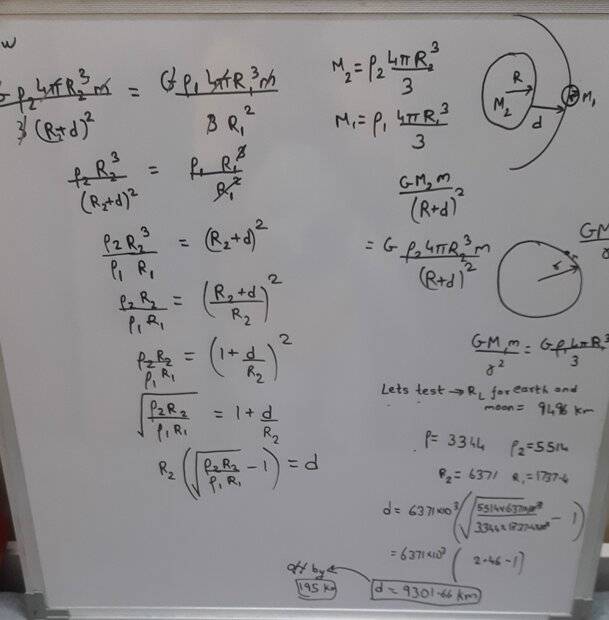 w
G ρ₂ 4πR₂³ m / 3 (R+d)² = G ρ₁ 4πR₁³ m / 3 R₁²
ρ₂ R₂³ / (R₂+d)² = ρ₁ R₁³ / R₁²
ρ₂ R₂³ / ρ₁ R₁ = (R₂+d)²
ρ₂ R₂ / ρ₁ R₁ = ((R₂+d) / R₂)²
ρ₂ R₂ / ρ₁ R₁ = (1 + d/R₂)²
√(ρ₂ R₂ / ρ₁ R₁) = 1 + d/R₂
R₂ (√(ρ₂ R₂ / ρ₁ R₁) - 1) = d
M₂ = ρ₂ 4πR₂³ / 3
M₁ = ρ₁ 4πR₁³ / 3
R
M₂
d
M₁
GM₂ m / (R+d)²
= G ρ₂ 4πR₂³ m / (R+d)²
r
GM₁ m / r² = G ρ₁ 4πR₁³ / 3
Lets test → R_L for earth and
moon = 9496 km
ρ = 3344 ρ₂ = 5514
R₂ = 6371 R₁ = 1737.4
d = 6371×10³ (√(5514×6371×10³ / 3344×1737.4×10³) - 1)
= 6371×10³ (2.46-1)
d = 9301.66 km
off by
195 Km